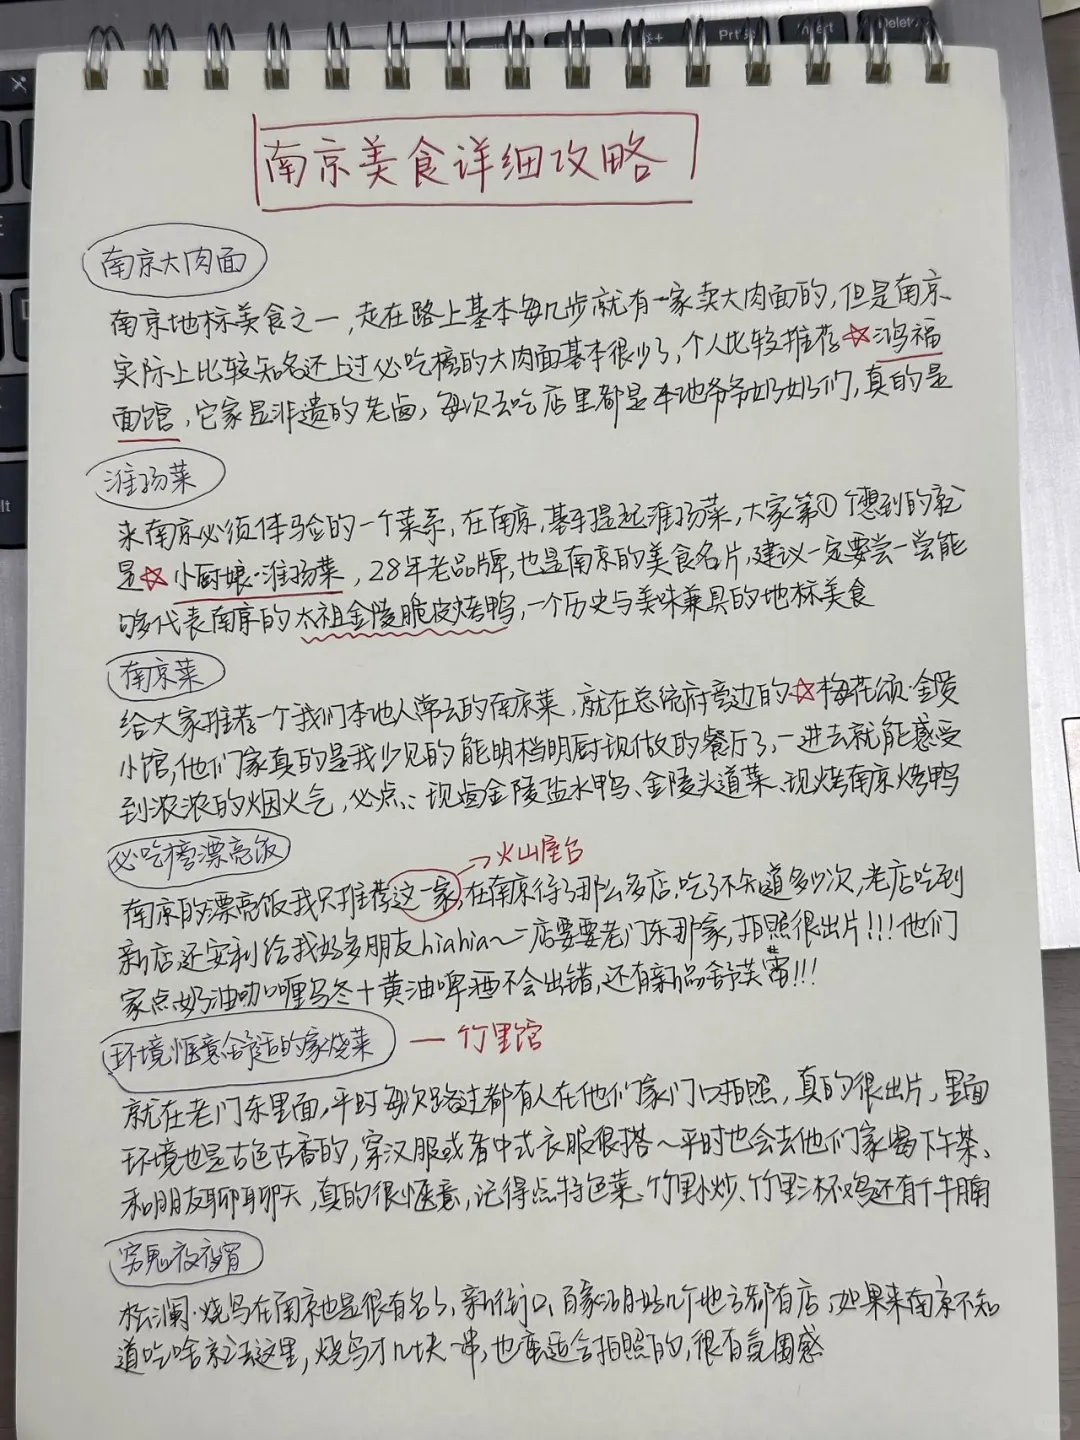 Prt Insert Delete
南京美食详细攻略
南京大肉面
南京地标美食之一,走在路上基本每几步就有一家卖大肉面的,但是南京
实际上比较知名还上过必吃榜的大肉面基本很少了,个人比较推荐☆鸿福
面馆,它家是非遗的老卤,每次去吃店里都是本地爷爷奶奶们,真的是
淮扬菜
来南京必须体验的一个菜系,在南京,基本提起淮扬菜,大家第①个想到的就
是☆小厨娘·淮扬菜,28年老品牌,也是南京的美食名片,建议一定要尝一尝能
够代表南京的太祖金陵脆皮烤鸭,一个历史与美味兼具的地标美食
南京菜
给大家推荐一个我们本地人常去的南京菜,就在总统府旁边的☆梅花颂·金陵
小馆,他们家真的是我少见的能明档明厨现做的餐厅了,一进去就能感受
到浓浓的烟火气,必点:现卤金陵盐水鸭、金陵头道菜、现烤南京烤鸭
必吃榜漂亮饭
→火山屋台
南京的漂亮饭我只推荐这一家,在南京待了那么多店,吃了不知道多少次,老店吃到
新店还安利给我好多朋友hiahia~一店要要老门东那家,拍照很出片!!!他们
家点奶油咖喱乌冬+黄油啤酒不会出错,还有新品舒芙蕾!!!
环境惬意舒适的家烧菜 — 竹里馆
就在老门东里面,平时每次路过都有人在他们家门口拍照,真的很出片,里面
环境也是古色古香的,穿汉服或者中式衣服很搭~平时也会去他们家喝下午茶、
和朋友聊聊天,真的很惬意,记得点特色菜、竹里小炒、竹里三杯鸡还有个牛腩
穷鬼夜夜宵
松澜·烧鸟在南京也是很有名了,新街口、百家湖好几个地方都有店,如果来南京不知
道吃啥就去这里,烧鸟才几块一串,也蛮适合拍照的,很有氛围感